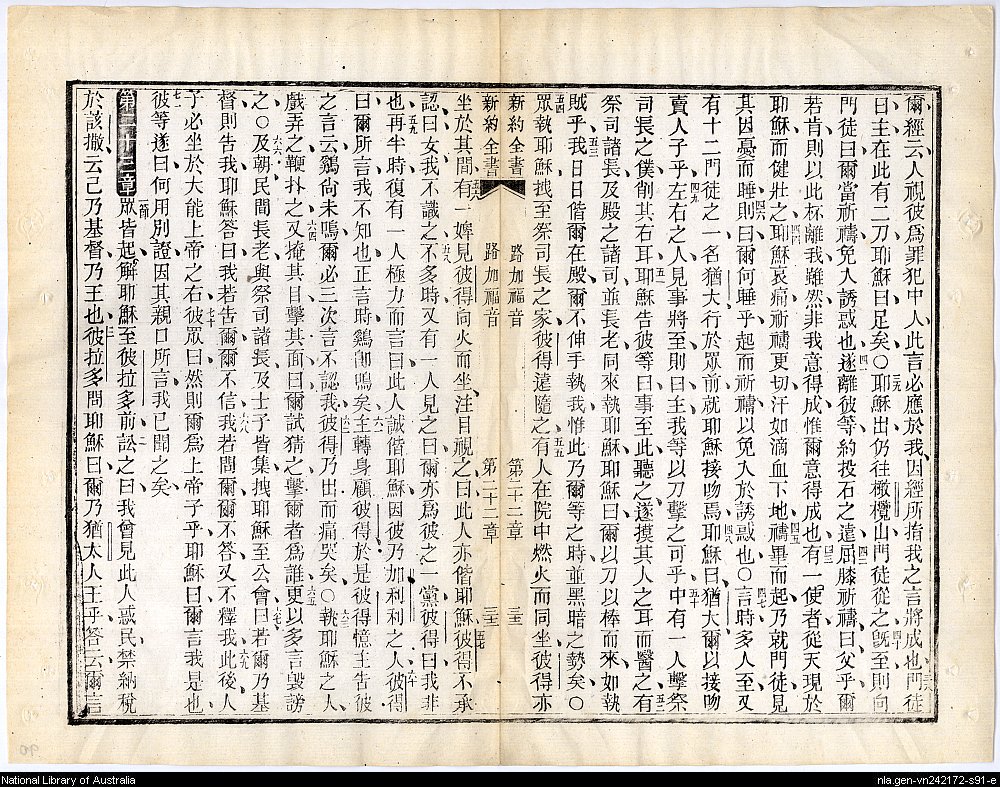 爾經云人視彼爲罪犯中人此言必應於我因經所指我之言將成也門徒
曰主在此有二刀耶穌曰足矣○耶穌出仍往橄欖山門徒從之旣至則向
門徒曰爾當祈禱免入誘惑也遂離彼等約投石之遠屈膝祈禱曰父乎爾
若肯則以此杯離我雖然非我意得成惟爾意得成也有一使者從天現於
耶穌而健壯之耶穌哀痛祈禱更切汗如滴血下地禱畢而起乃就門徒見
其因憂而睡則曰爾何睡乎起而祈禱以免入於誘惑也○言時多人至又
有十二門徒之一名猶大行於眾前就耶穌接吻焉耶穌曰猶大爾以接吻
賣人子乎左右之人見事將至則曰主我等以刀擊之可乎中有一人擊祭
司長之僕削其右耳耶穌告彼等曰事至此聽之遂摸其人之耳而醫之有
祭司諸長及殿之諸司並長老同來執耶穌耶穌曰爾以刀以棒而來如執
賊乎我日日偕爾在殿爾不伸手執我惟此乃爾等之時並黑暗之勢矣○
眾執耶穌拽至祭司長之家彼得遠隨之有人在院中燃火而同坐彼得亦
新約全書 路加福音 第二十二章
新約全書 路加福音 第二十二章
坐於其間有一婢見彼得向火而坐注目視之曰此人亦偕耶穌彼得不承
認曰女我不識之不多時又有一人見之曰爾亦爲彼之一黨彼得曰我非
也再半時復有一人極力而言曰此人誠偕耶穌因彼乃加利利之人彼得
曰爾所言我不知也正言時鷄卽鳴矣主轉身顧彼得於是彼得憶主告彼
之言云鷄尙未鳴爾必三次言不認我彼得乃出而痛哭矣○執耶穌之人
戲弄之鞭扑之又掩其目擊其面曰爾試猜之擊爾者爲誰更以多言毀謗
之○及朝民間長老與祭司諸長及士子皆集拽耶穌至公會曰若爾乃基
督則告我耶穌答曰我若告爾爾不信我若問爾爾不答又不釋我此後人
子必坐於大能上帝之右彼眾曰然則爾爲上帝子乎耶穌曰爾言我是也
彼等遂曰何用別證因其親口所言我已聞之矣
第二十三章眾皆起解耶穌至彼拉多前訟之曰我曾見此人惑民禁納稅
於該撒云己乃基督乃王也彼拉多問耶穌曰爾乃猶太人王乎答云爾言
National Library of Australia
nla.gen-vn242172-s91-e